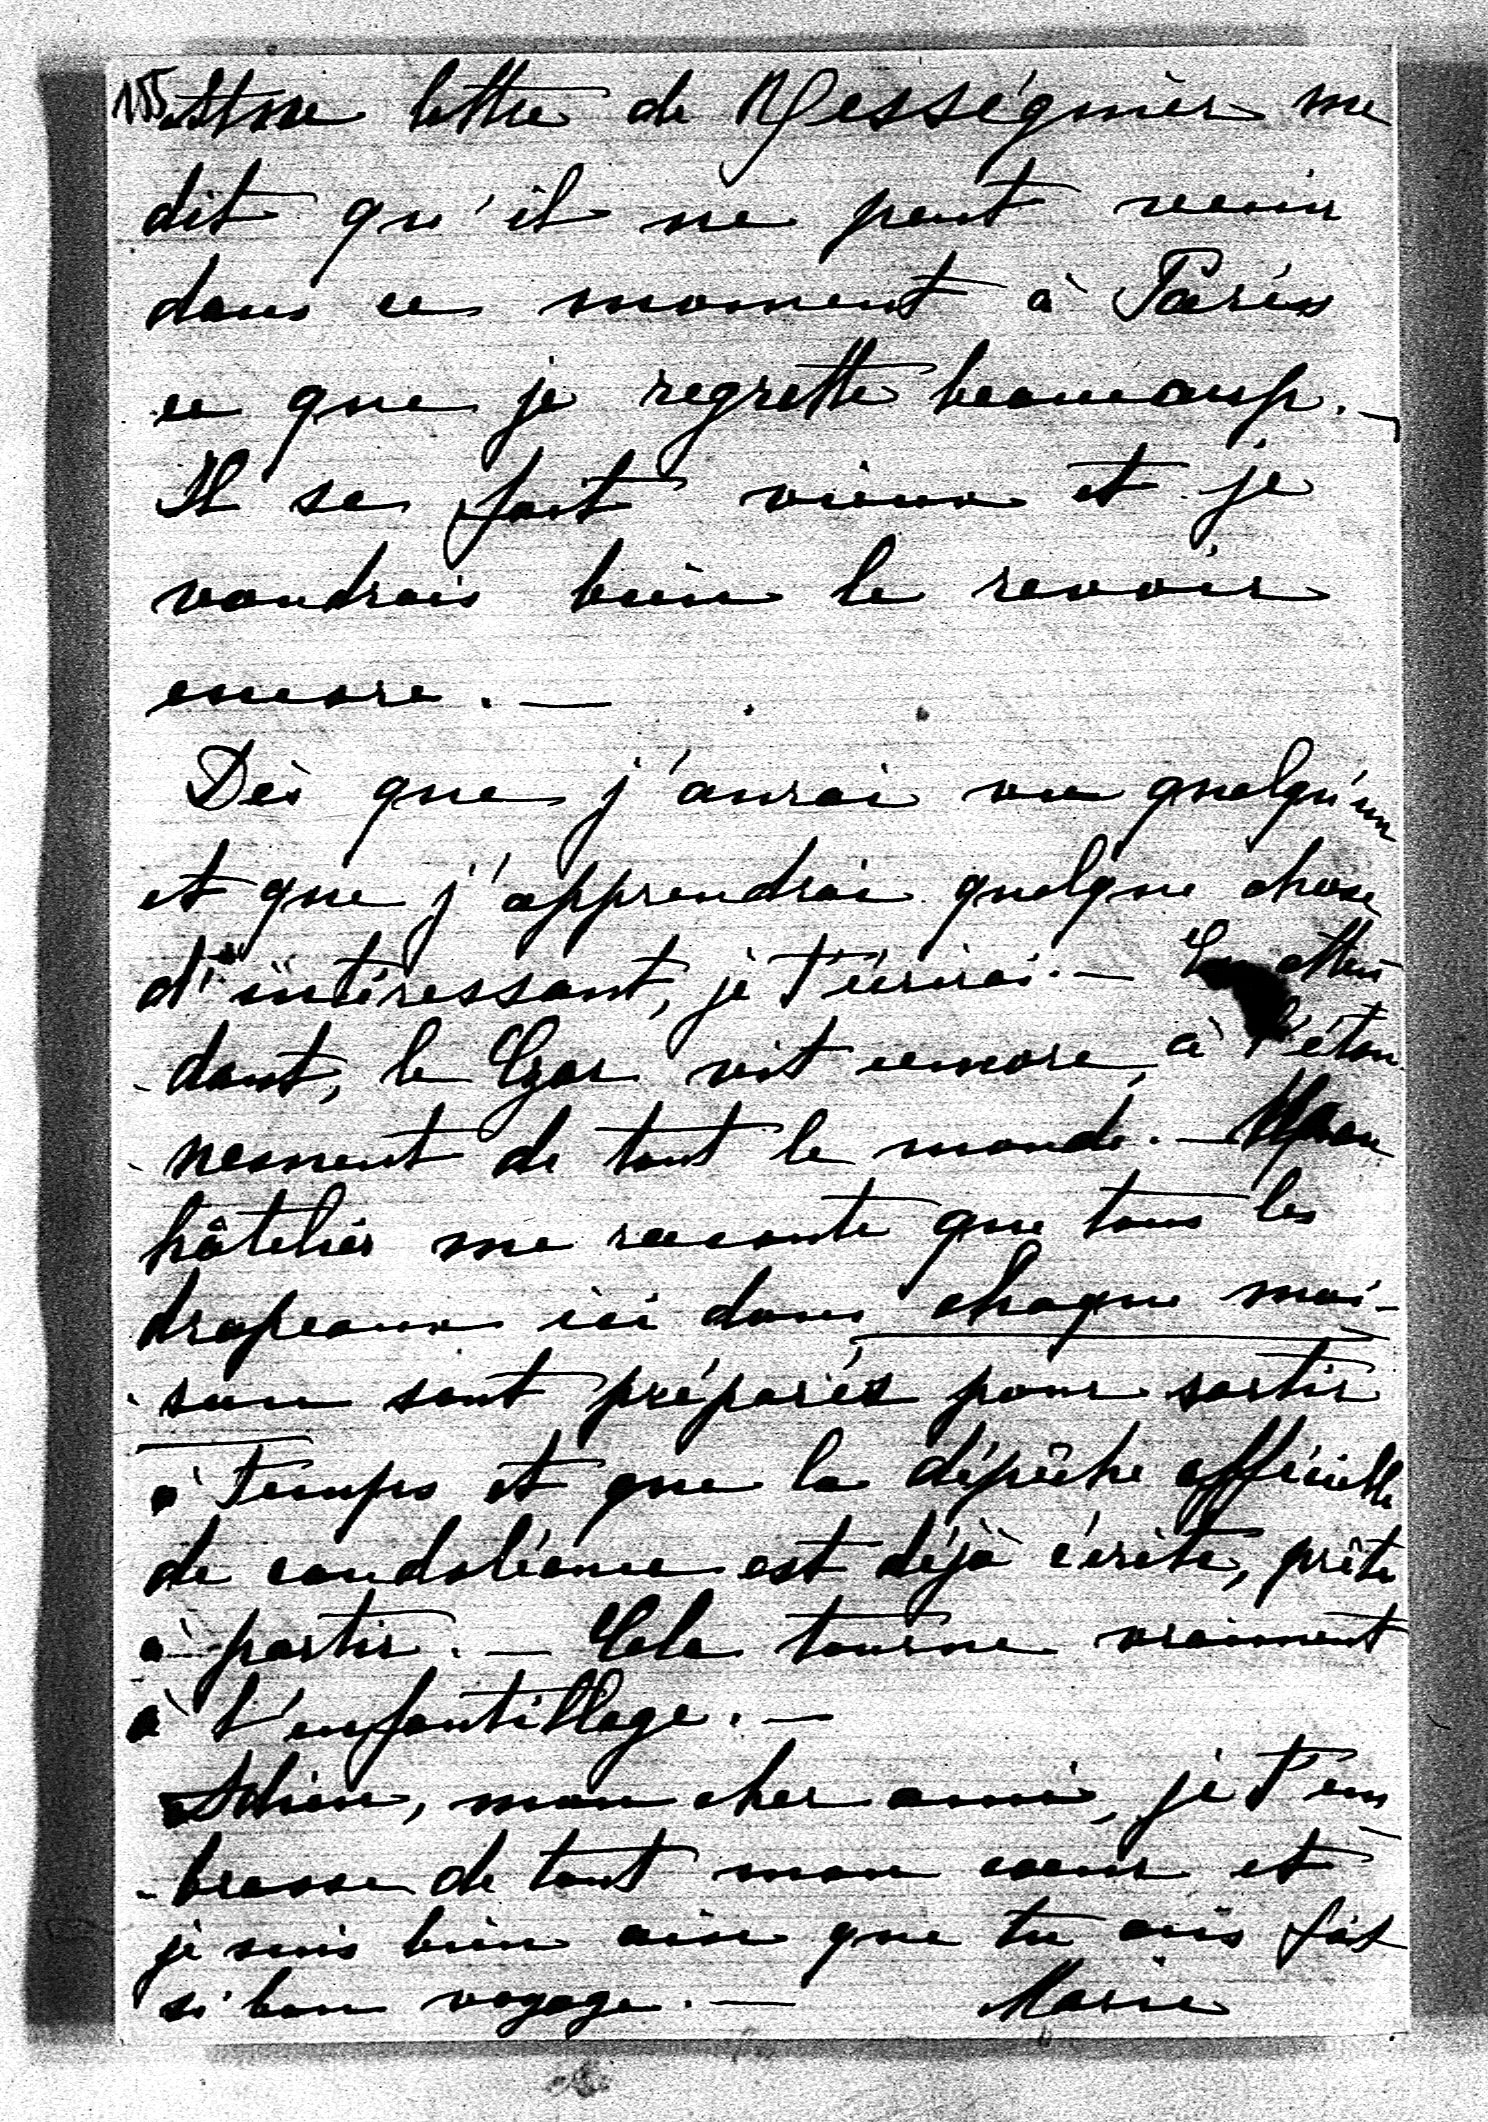 155
Une lettre de Rességuier me
dit qu'il ne peut venir
dans ce moment à Paris
ce que je regrette beaucoup. —
Il se fait vieux et je
voudrais bien le revoir
encore. —
Dès que j'aurai vu quelqu'un
et que j'apprendrai quelque chose
d'intéressant, je t'écrirai. — En atten-
dant, le Czar vit encore à l'éton
nement de tout le monde. — Mon
hôtelier me raconte que tous les
drapeaux ici dans chaque mai-
son sont préparés pour sortir
à temps et que la dépêche officielle
de condoléance est déjà écrite, prête
à partir. — Cela tourne vraiment
à l'enfantillage. —
Adieu, mon cher ami, je t'em
-brasse de tout mon coeur et
je suis bien aise que tu aies fait
si bon voyage. — Marie